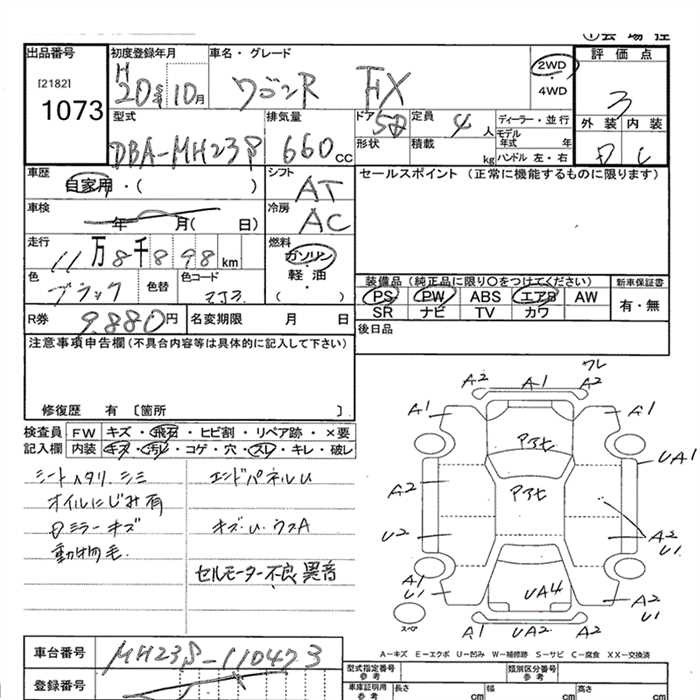 出品番号
[2182]
1073
初度登録年月
H20年10月
車名・グレード
ワゴンR FX
2WD
・
4WD
評価点
3
外装 内装
D C
型式
DBA-MH23S
排気量
660cc
ドア 5D
形状
定員 4人
積載 kg
ディーラー・並行
モデル
年式 年
ハンドル 左・右
車歴
自家用・( )
シフト
AT
セールスポイント (正常に機能するものに限ります)
車検
年 月( 日)
冷房
AC
走行
11万8千898km
燃料
ガソリン
軽・油
( )
色
ブラック
色替
色コード
ZJ3
装備品 (純正品に限り〇をつけてください)
PS PW ABS エアB AW
SR ナビ TV カワ
新車保証書
有・無
R券 9,880円
名変期限 月 日
後日品
注意事項申告欄(不具合内容等は具体的に記入して下さい)
修復歴 有 〔箇所 〕
検査員
記入欄
FW キズ・飛石・ヒビ割・リペア跡・×要
内装 キズ・汚レ・コゲ・穴・スレ・キレ・破レ
シートヘタリ、シミ
オイルにじみ有
Dミラーキズ
動物毛.
エンドパネルU
キズ.U.ウスA
セルモーター不良 異音
ワレ
A2 A1 A2
A1 A1
アアセ
UA1
A2
アアセ
U2
A2
U1
A1
U1
UA4
A2
U1
スペア
A1 UA2 A2
A-キズ E-エクボ U-凹み W-補修跡 S-サビ C-腐食 XX-交換済
車台番号
MH23S-110473
登録番号
型式指定番号
参考
類別区分番号
参考
車庫証明用
参考
長さ cm
幅 cm
高さ cm